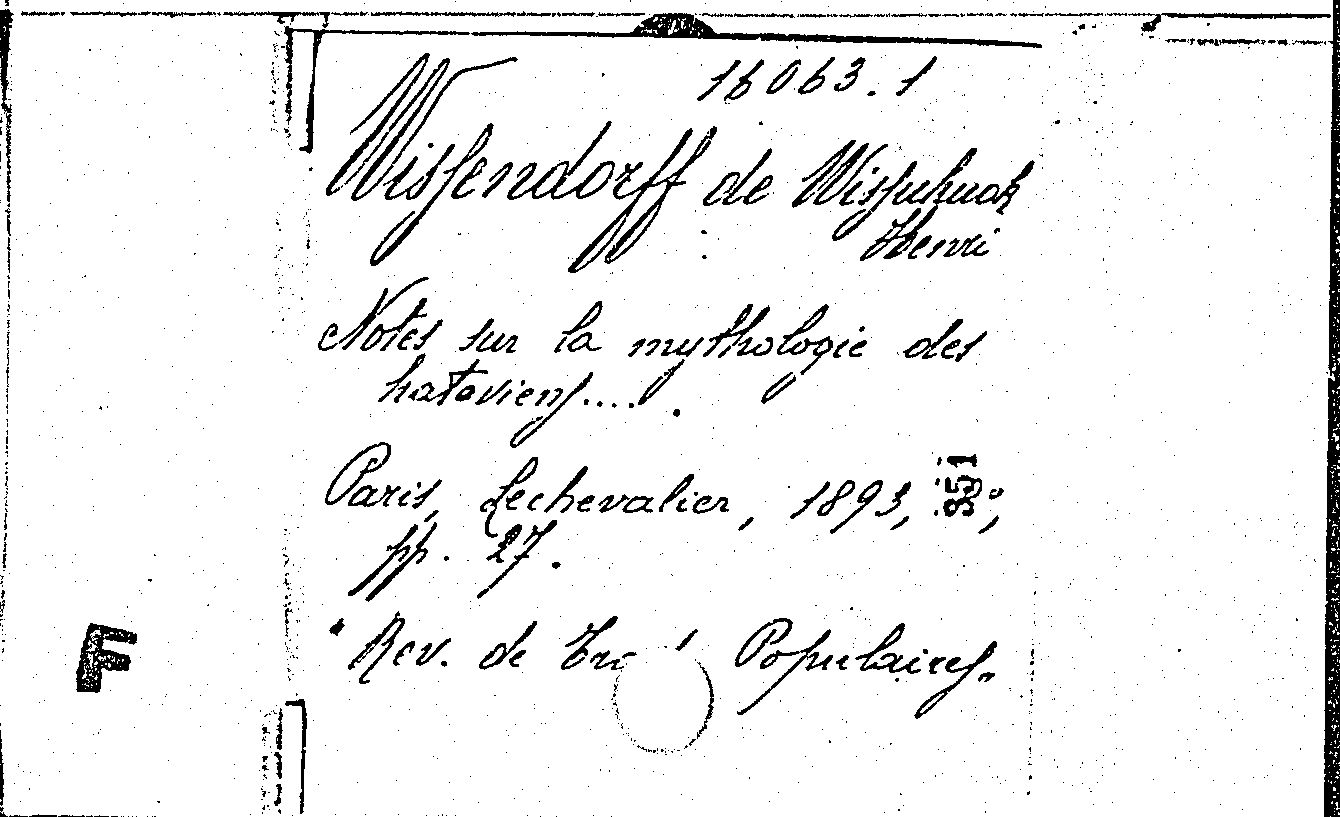 16063.1
Wissendorff de Wissukuok
Henri
Notes sur la mythologie des
Lataviens....
Paris, Lechevalier, 1893, 8°,
351
pp. 27.
"Rev. de Tra Populaires"
F